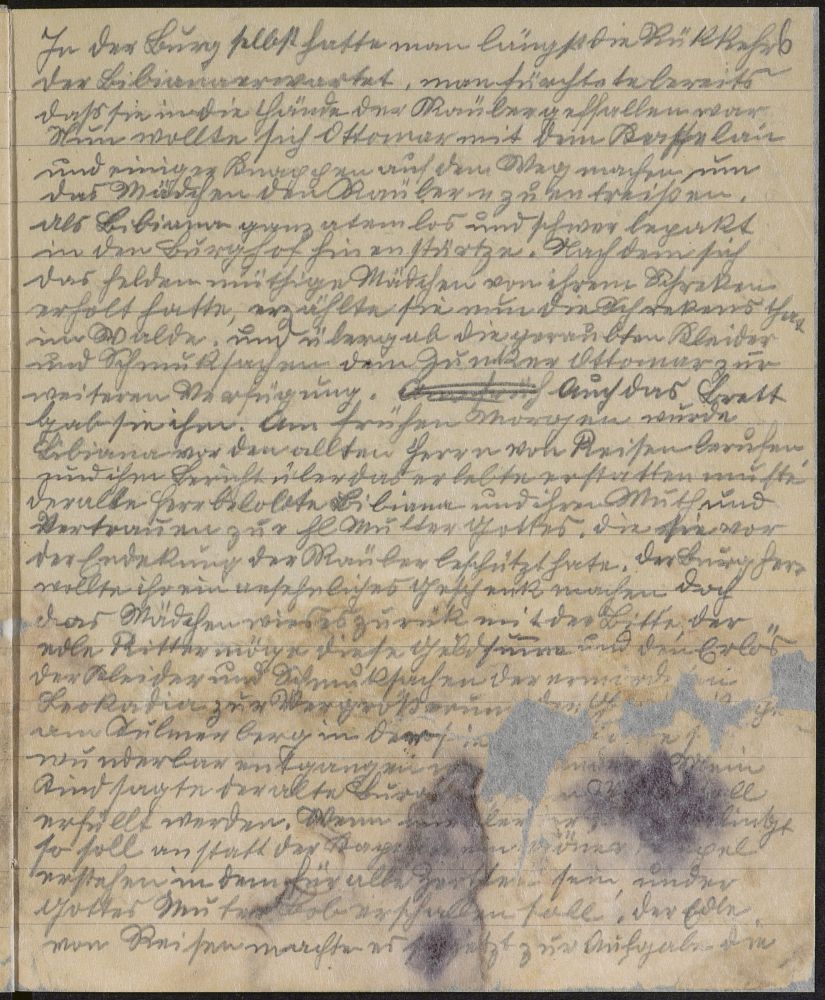 In der Burg selbst hatte man längst die Rükkehr
der Bibiana erwartet, man fürchtete bereits
dass sie in die Hände der Räuber geffallen war
Nun wollte sich Ottomar mit dem Kasstelan
und einiger Knappen auf dem Weg machen, um
das Mädchen den Räubern zu entreißen.
als Bibiana ganz atemlos und schwer bepakt
in den Burghof hineinstürtze. Nachdem sich
das heldenmüthige Mädchen von ihrem Schreken
erholt hatte, erzählte sie nun die Schrekensthat
im Walde. und übergab die geraubten Kleider
und Schmuksachen dem Junker Ottomar zur
weiteren Verfügung. Auch das Brett
gab sie ihm. Am frühen Morgen wurde
Bibiana vor den allten Herrn von Reisen berufen,
und ihm Bericht über das erlebte erstatten mußte
der alte Herr belobte Bibiana und ihren Muth und
Vertrauen zur hl Mutter Gottes. die sie vor
der Endekung der Räuber beschützt hate. der Burgherr
wollte ihr ein ansehnliches Geschenk machen doch
das Mädchen wies es zurük mit der Bitte, der
edle Ritter möge diese Geldsumme und den Erlös
der Kleider und Schmuksachen der ermorde
Leokadia zur Vergrößerung der
am Kulmerberg in der sie
wunderbar entgangen Mein
Kind sagte der alte Burg soll
erfüllt werden. Wenn
so soll anstatt der Kape
erstehen in dem für alle Zeiten sein, und der
Gottes Muter Lob erschallen soll. der Edle
von Reisen machte es jetzt zur Aufgabe die